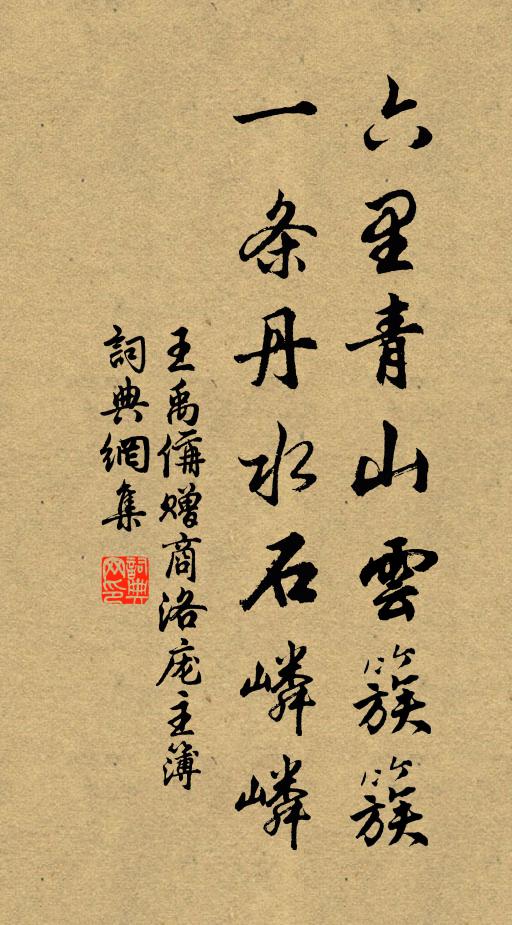 六里青山雲簇簇
一条丹水石嶙嶙
王禹偁贈商洛庞主簿
詞典網集
詞典網印